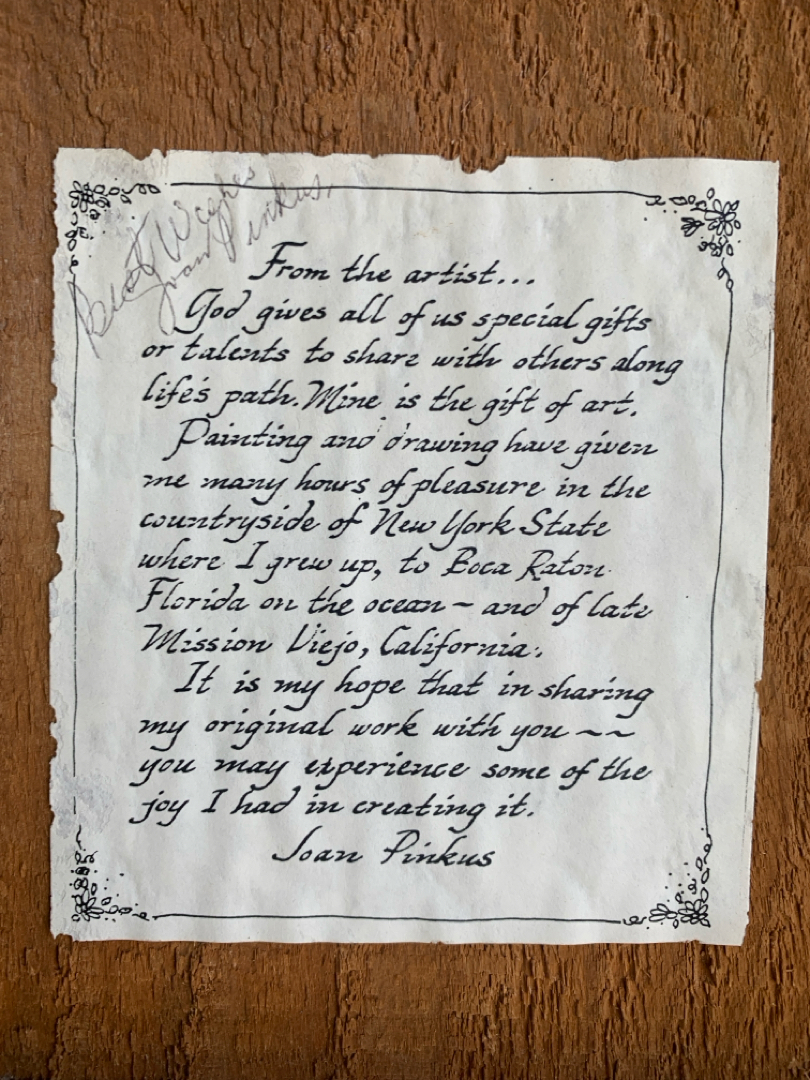 Best Wishes
Joan Pinkus
From the artist...
God gives all of us special gifts
or talents to share with others along
life's path. Mine is the gift of art.
Painting and drawing have given
me many hours of pleasure in the
countryside of New York State
where I grew up, to Boca Raton
Florida on the ocean ~ and of late
Mission Viejo, California.
It is my hope that in sharing
my original work with you ~~
you may experience some of the
joy I had in creating it.
Joan Pinkus